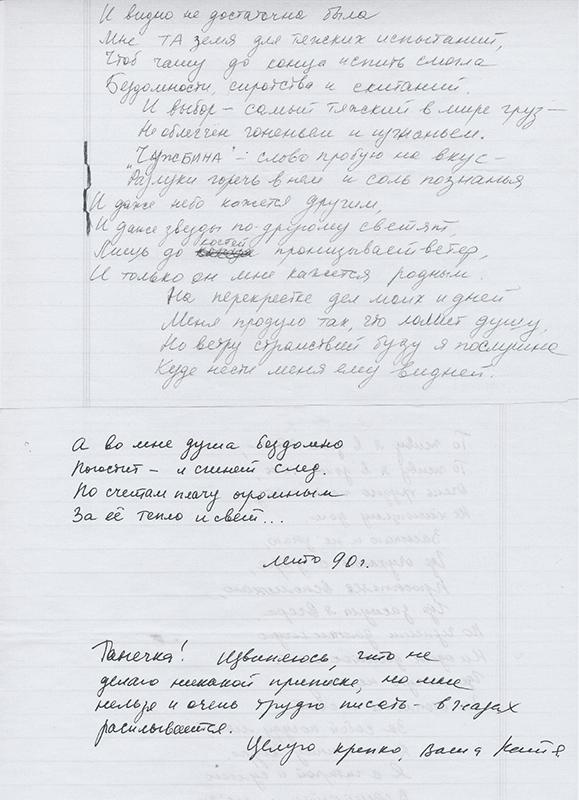 И видно не достаточна была
Мне ТА земля для тяжских испытаний,
Чтоб чашу до конца испить смогла
Бездомности, сиротства и скитаний.
И выбор – самый тяжский в мире груз –
Не облегчен гоненьем и изгнаньем.
„Чужбина" – слово пробую на вкус –
Разлуки горечь в нем и соль познанья
И даже небо кажется другим,
И даже звезды по-другому светят,
Лишь до костей пронизывает ветер,
И только он мне кажется родным.
На перекрестке дел моих и дней
Меня продуло так, что ломит душу,
Но ветру странствий буду я послушна
Куда нести меня ему видней.
А во мне душа бездомно
Погостит – и сгинет след.
По счетам плачу огромным
За её тепло и свет...
лето 90 г.
Танечка! Извиняюсь, что не
делаю никакой приписки, но мне
нельзя и очень трудно писать – в глазах
расплывается.
Целую крепко, Ваша Катя.